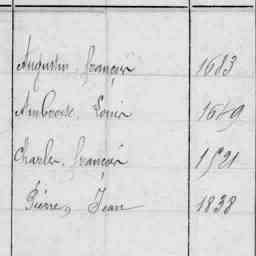 Augustin. françois 1683
Ambroise. Louis 1649
Charles. françois 1521
Pierre, Jean 1838